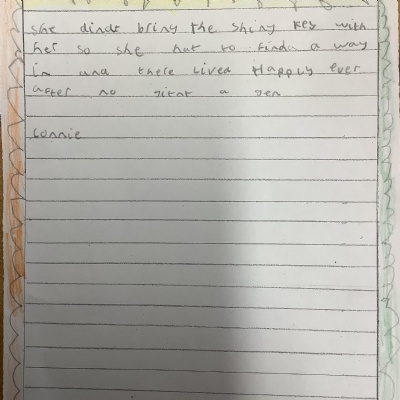 she dindt bring the shiny key with
her so she hat to finda a way
in and there Lived Happly ever
after no gient a gen
Connie